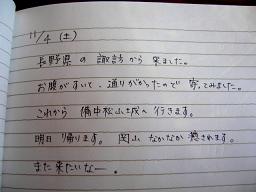 11/4 (土)
長野県の諏訪から来ました。
お腹がすいて、通りがかったので寄ってみました。
これから備中松山城へ行きます。
明日帰ります。岡山なかなか癒されます。
また来たいなー。